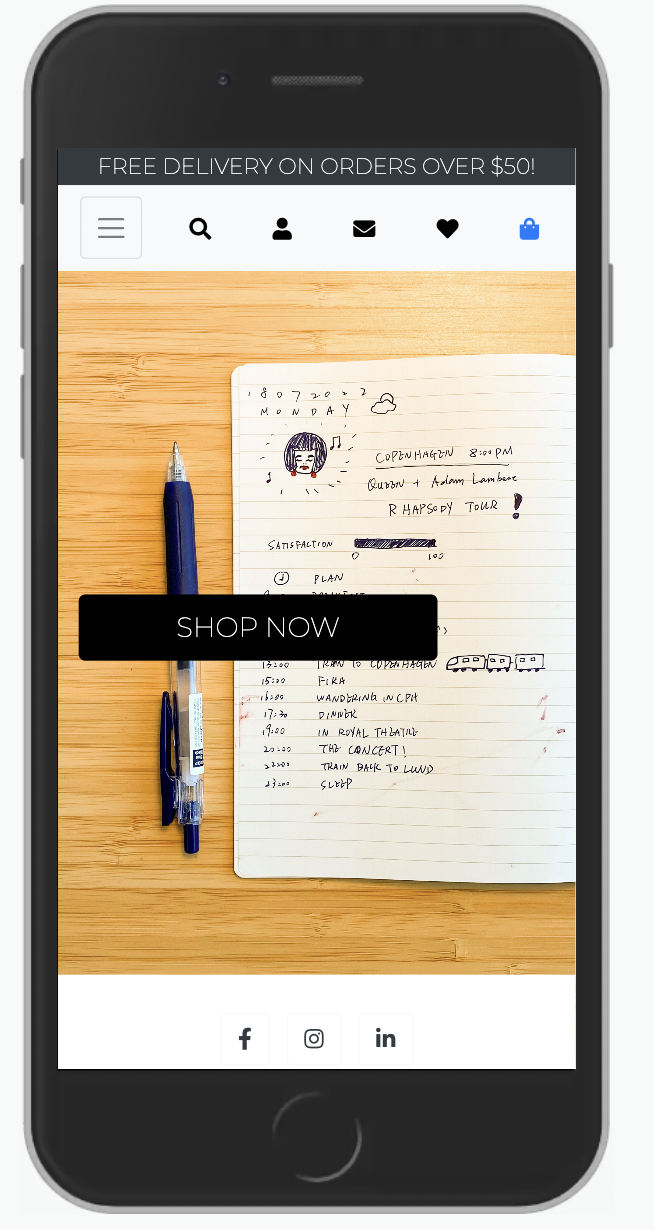 FREE DELIVERY ON ORDERS OVER $50!
18072022
MONDAY
COPENHAGEN 8:00 PM
QUEEN + Adam Lambert
RHAPSODY TOUR !
SATISFACTION
0 100
PLAN
SHOP NOW
13:00 TRAIN TO COPENHAGEN
15:00 FIKA
16:00 WANDERING IN CPH
17:30 DINNER
19:00 IN ROYAL THEATRE
20:00 THE CONCERT!
22:00 TRAIN BACK TO LUND
23:00 SLEEP